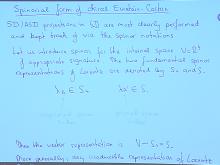 Spinorial form of chiral Einstein-Cartan
SD/ASD projections in 4D are most clearly performed
and kept track of via the spinor notations
Let us introduce spinors for the internal space V=R⁴
of appropriate signature. The two fundamental spinor
representations of Lorentz are denoted by S₊ and S₋
λ_A ∈ S₊ λ_A' ∈ S₋
Then the vector representation is V = S₊ ⊗ S₋
More generally, any irreducible representation of Lorentz